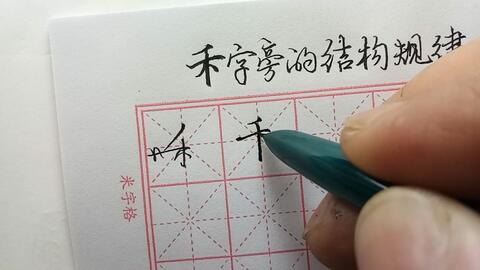 禾字旁的结构规律
米字格